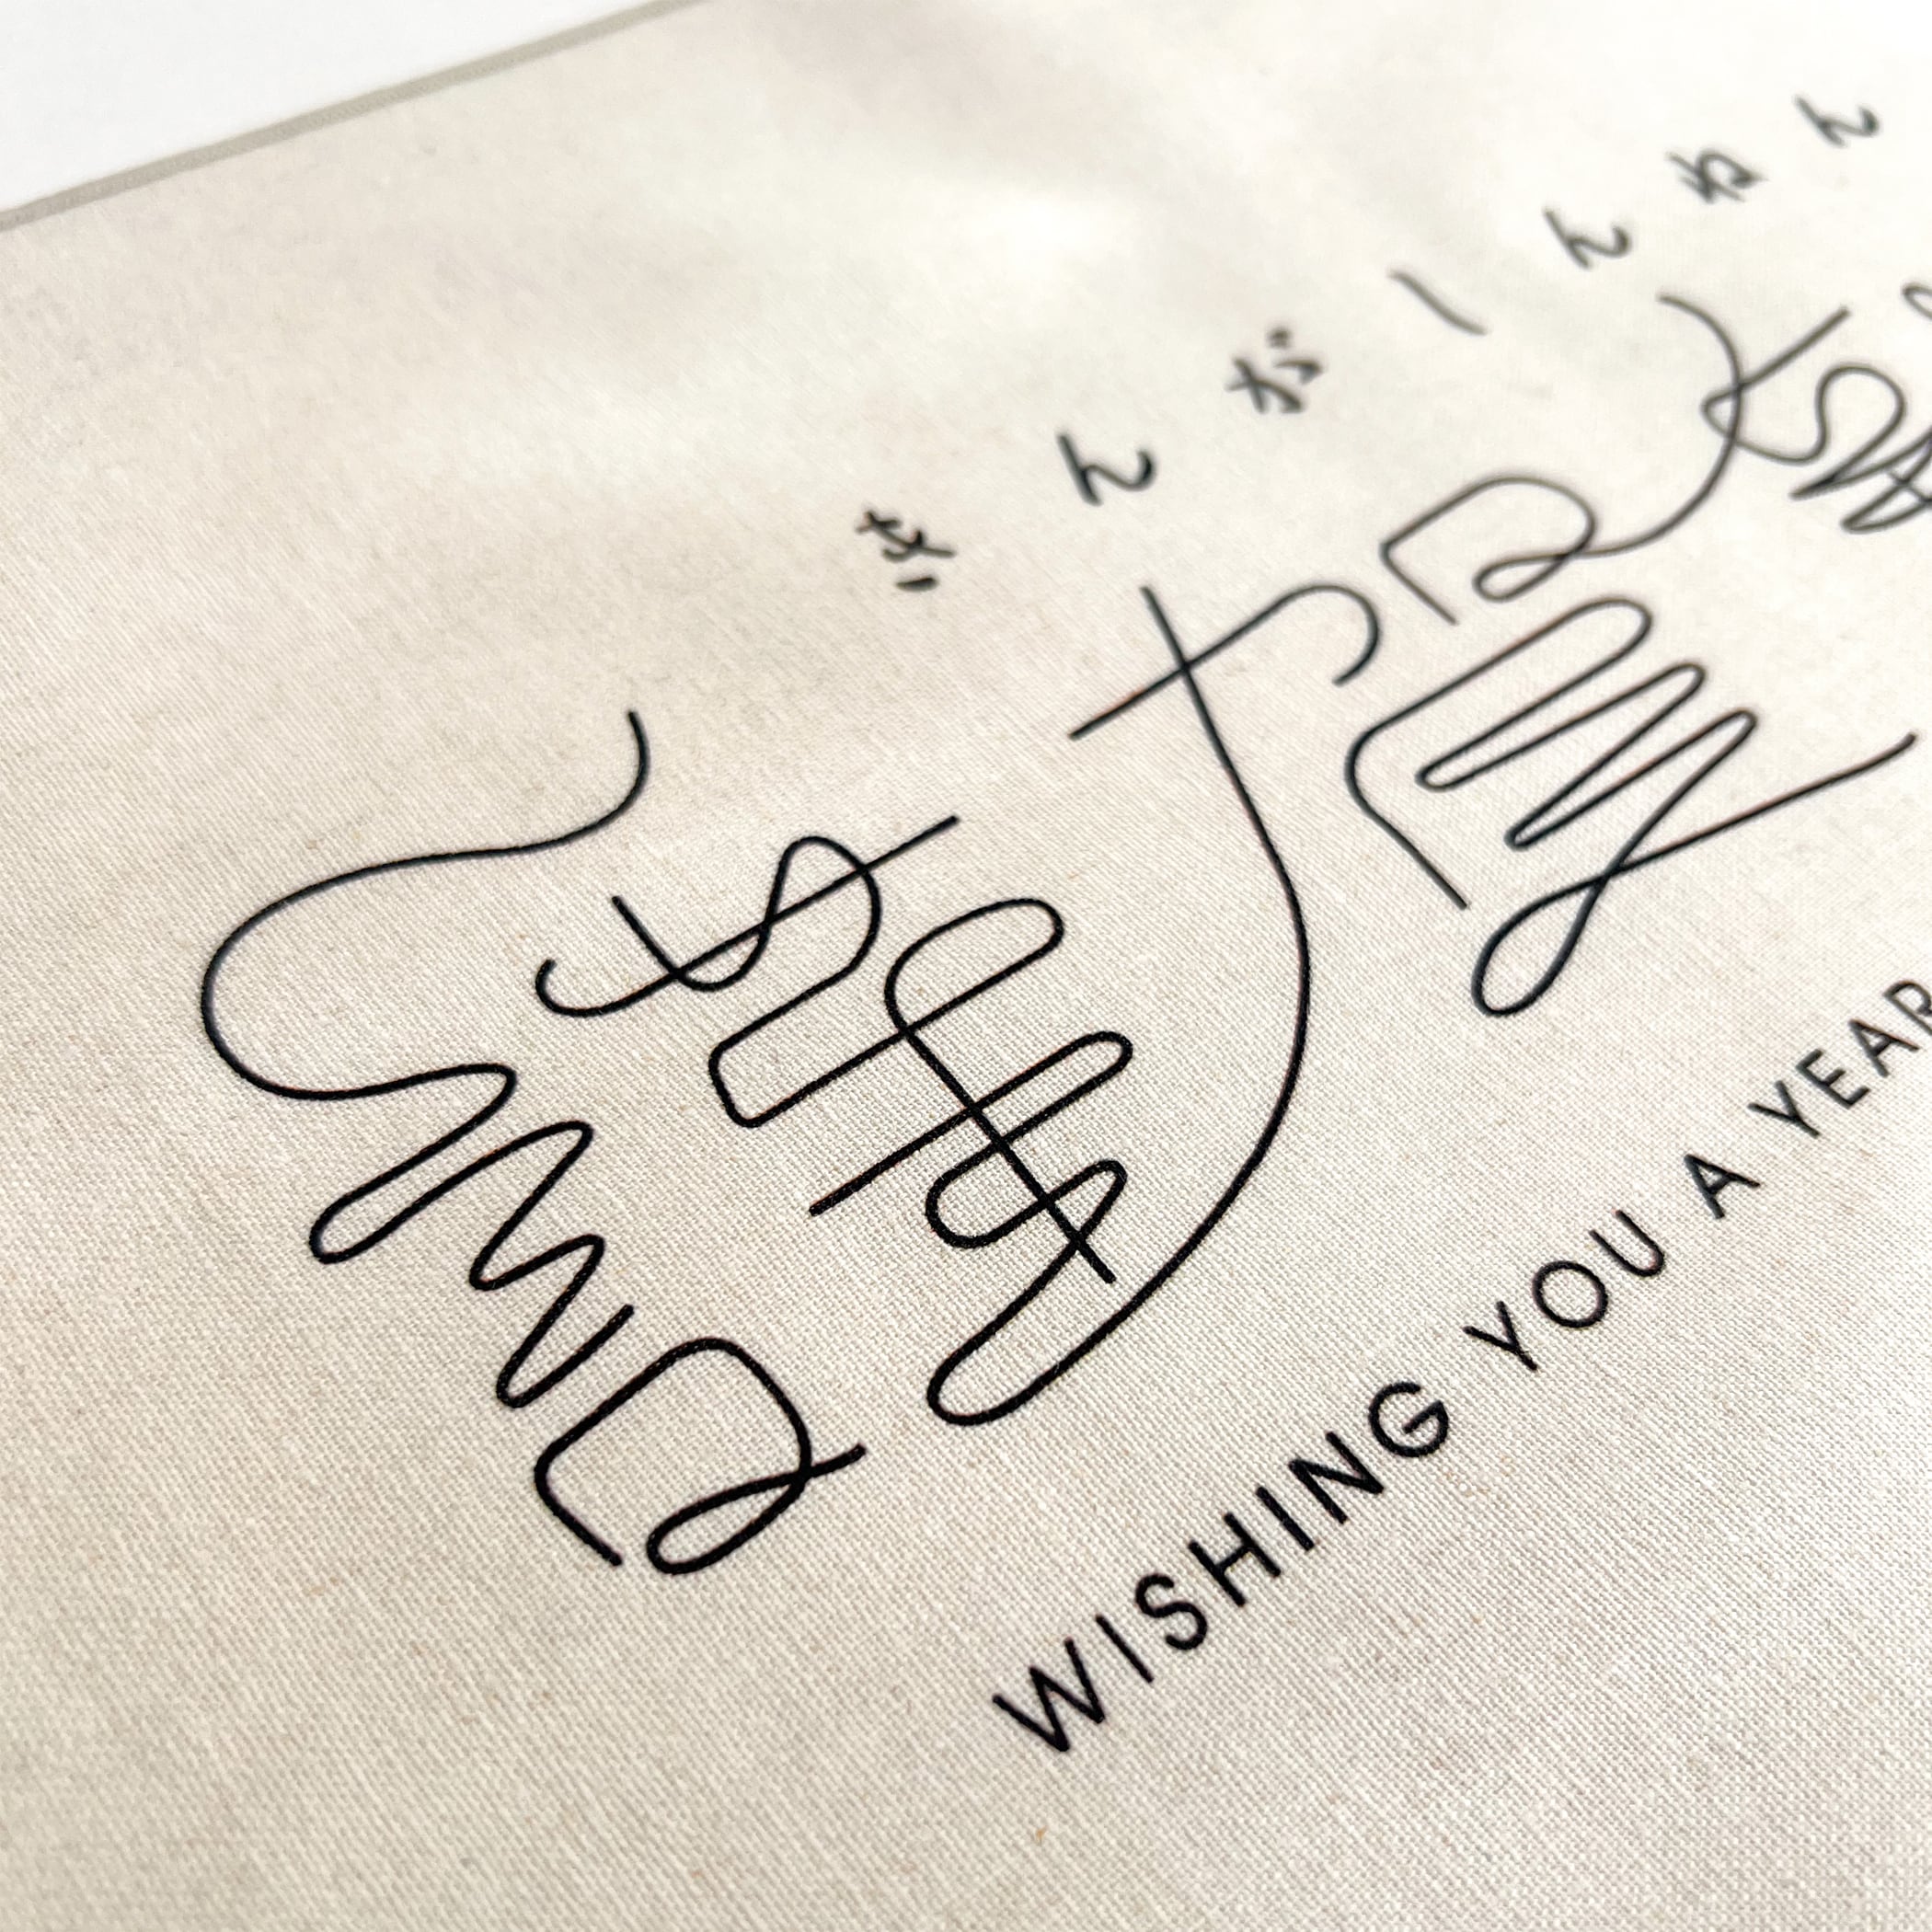 きんがしんねん
謹賀
WISHING YOU A YEAR